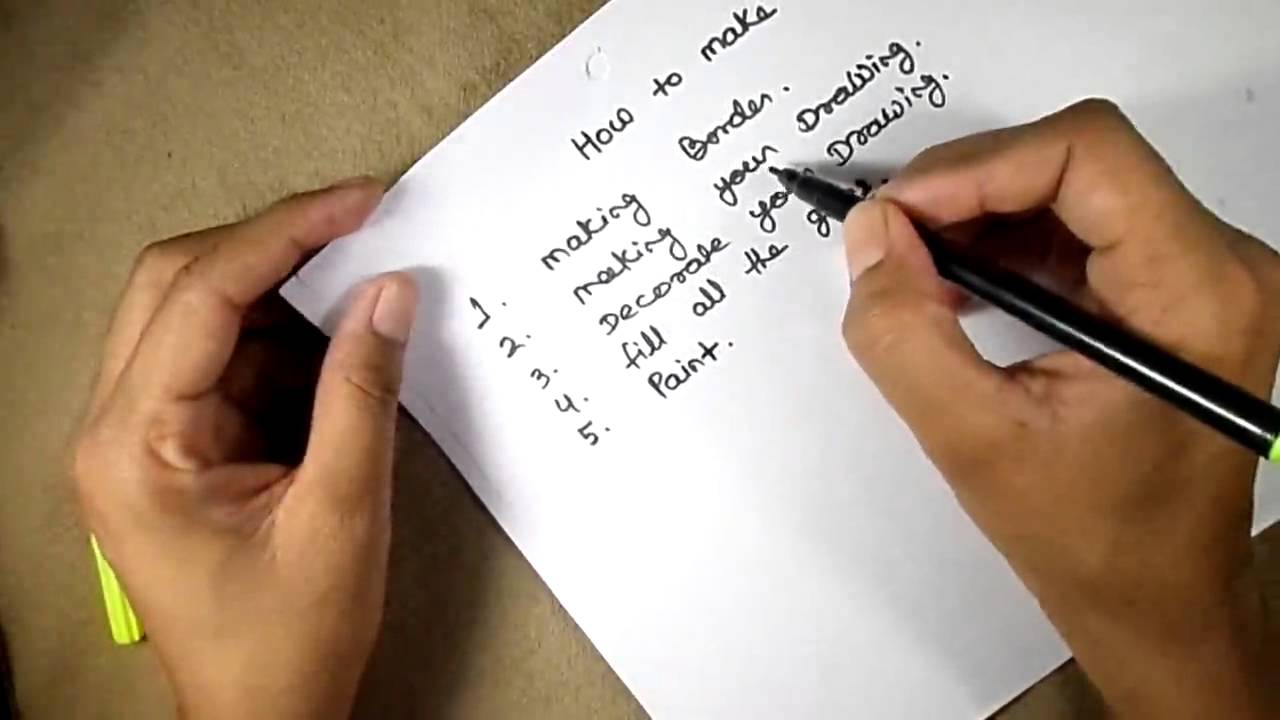 How to make
1. making Border.
2. making your Drawing.
3. Decorate your Drawing.
4. fill all the
5. Paint.